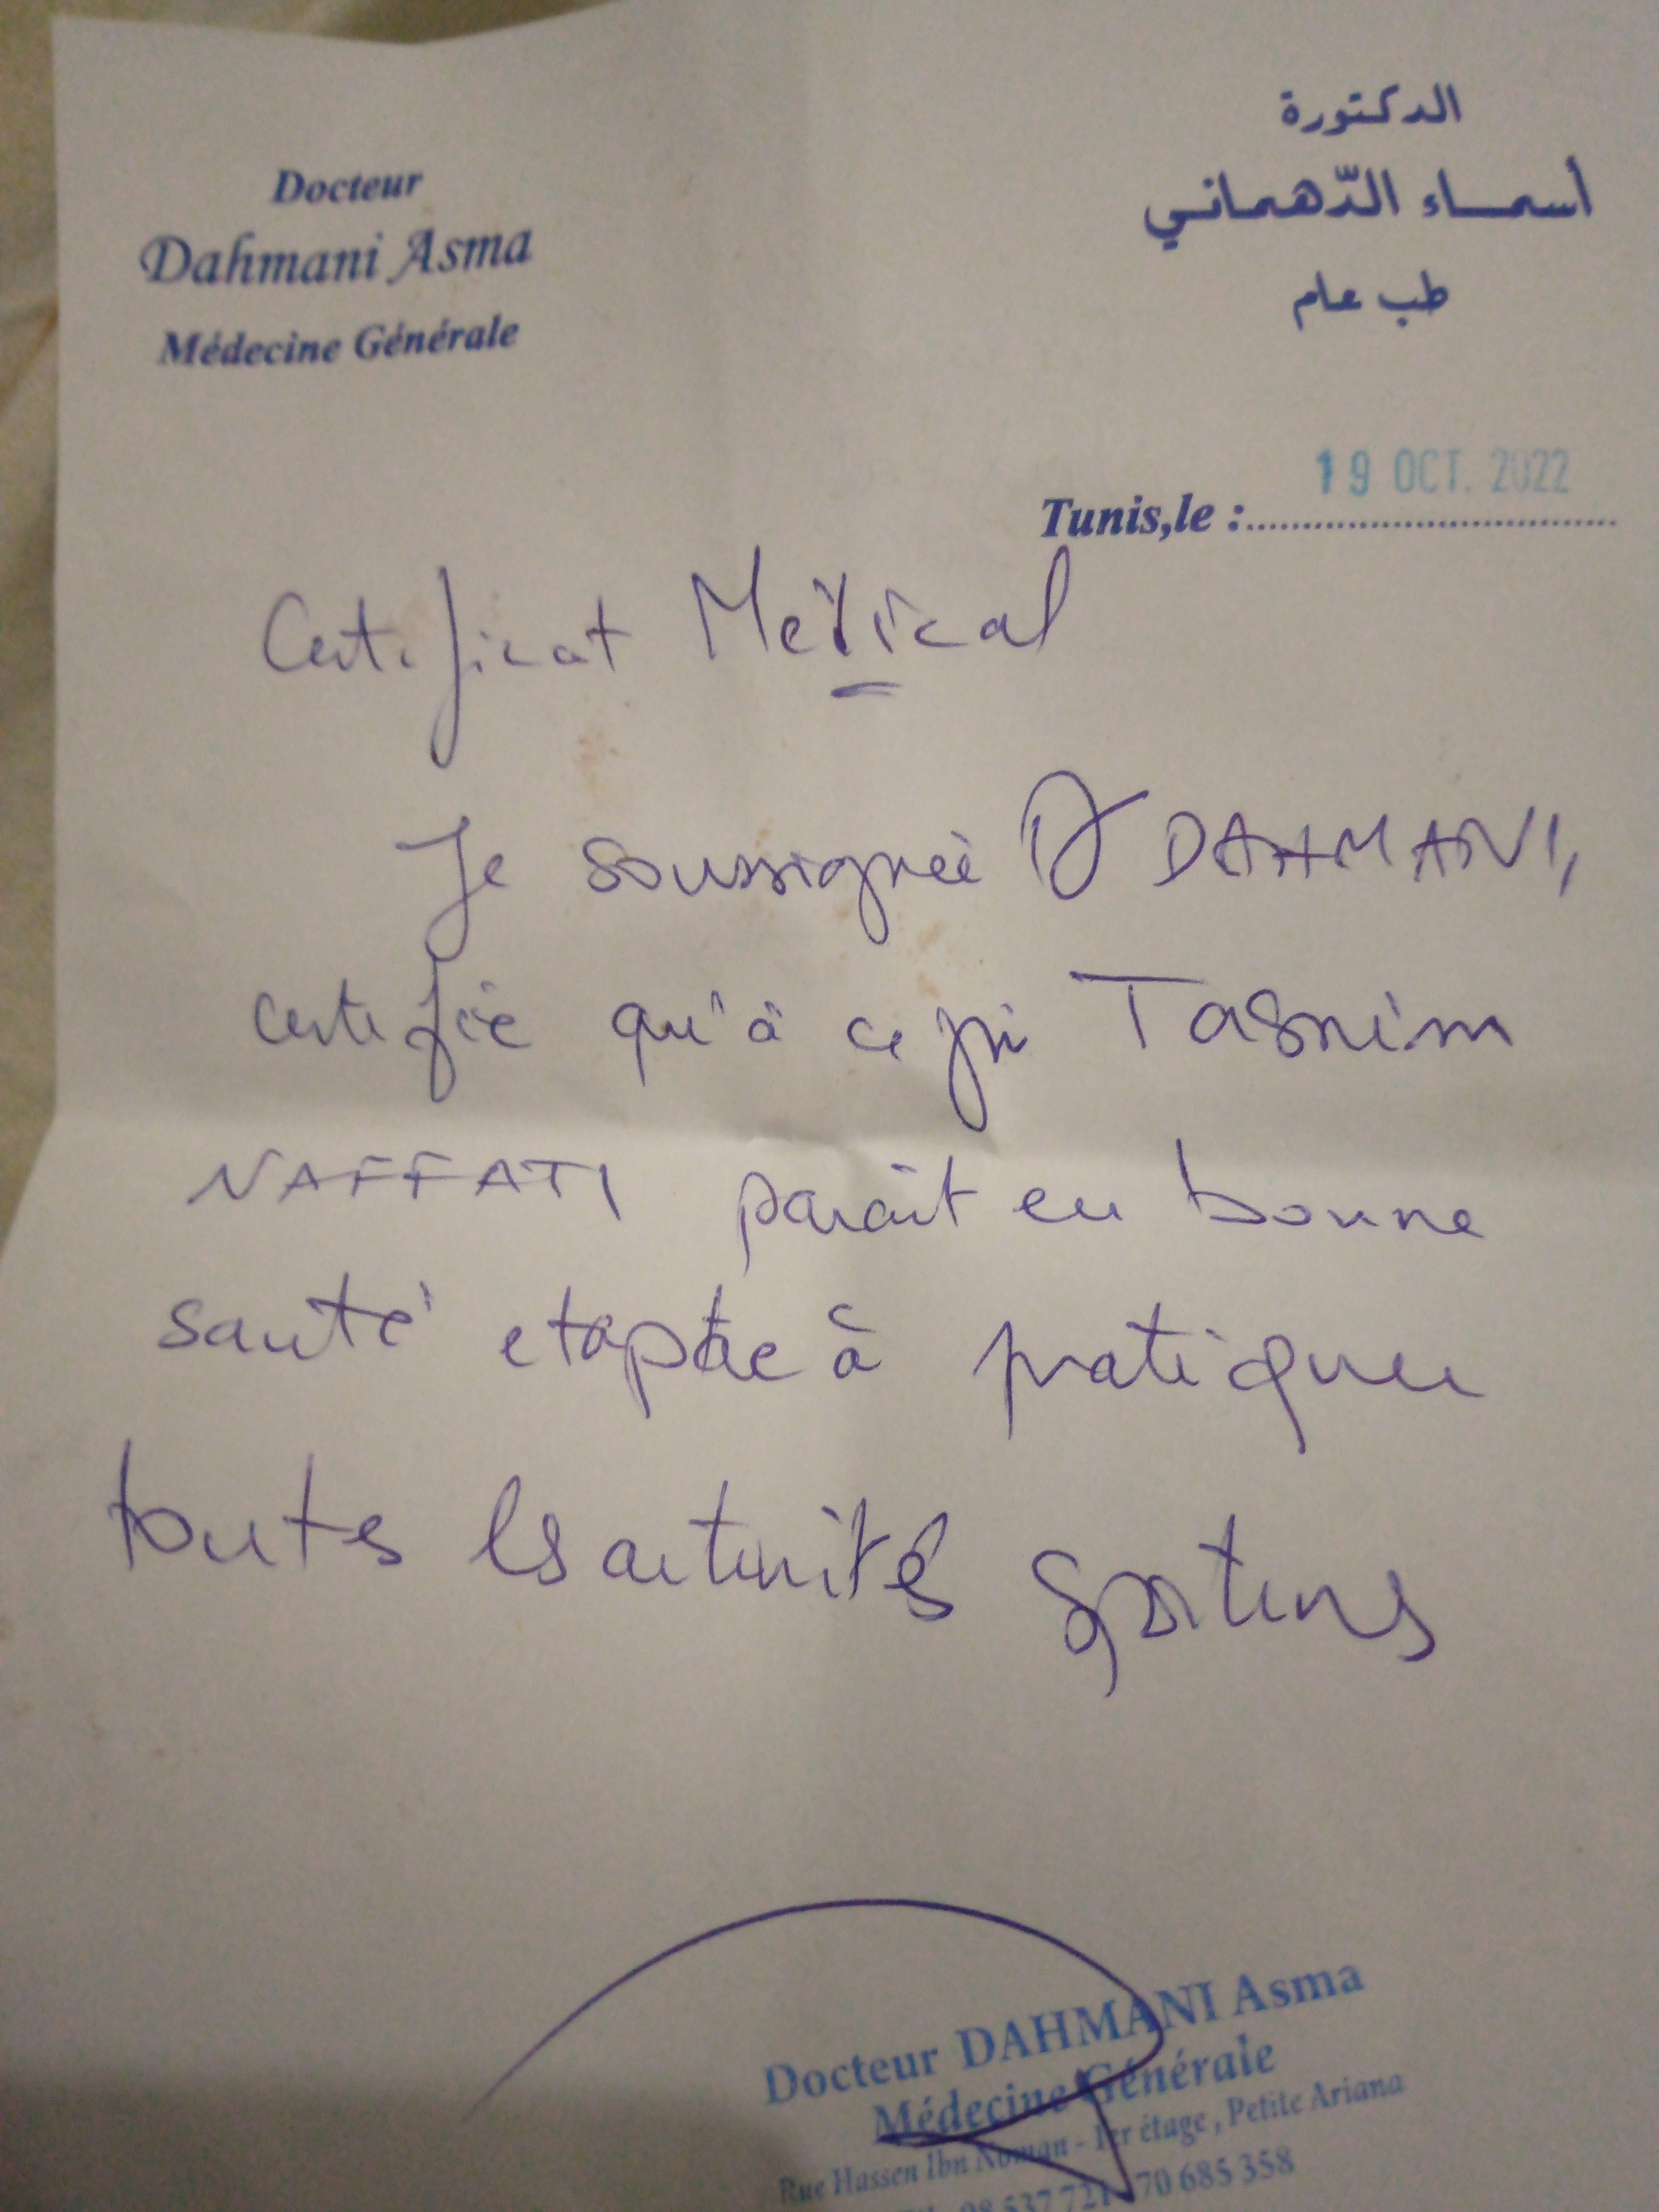 Docteur
Dahmani Asma
Médecine Générale
الدكتورة
أسماء الدّهماني
طب عام
19 OCT. 2022
Tunis,le :
Certificat Médical
Je soussignée Dr DAHMANI,
certifie qu'à ce jour Tasnim
NAFFATI parait en bonne
santé et apte à pratiquer
toutes les activités sportives
Docteur DAHMANI Asma
Médecine Générale
Rue Hassen Ibn Noman - 1er étage, Petite Ariana
98 537 721 70 685 358